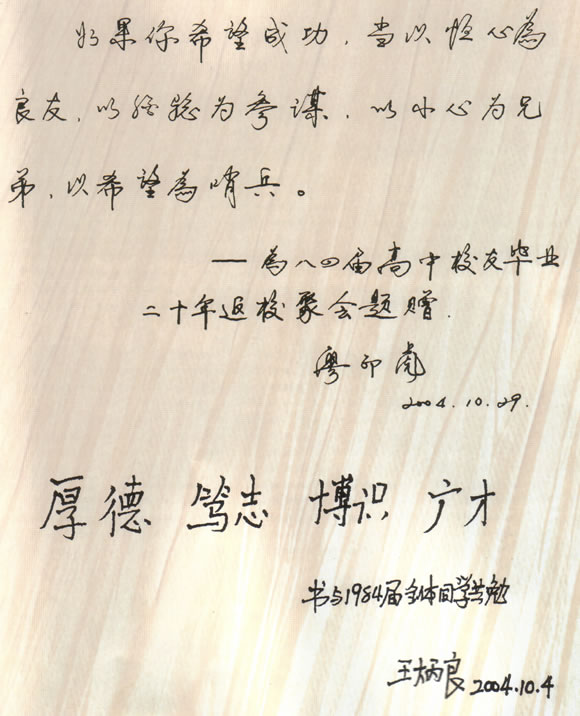 如果你希望成功，当以恒心為
良友，以经验为参谋，以小心为兄
弟，以希望為哨兵。
——為八四届高中校友毕业
二十年返校聚会题赠.
廖印
2004.10.29.
厚德 笃志 博识 广才
书与1984届全体同学共勉
王炳良 2004.10.4